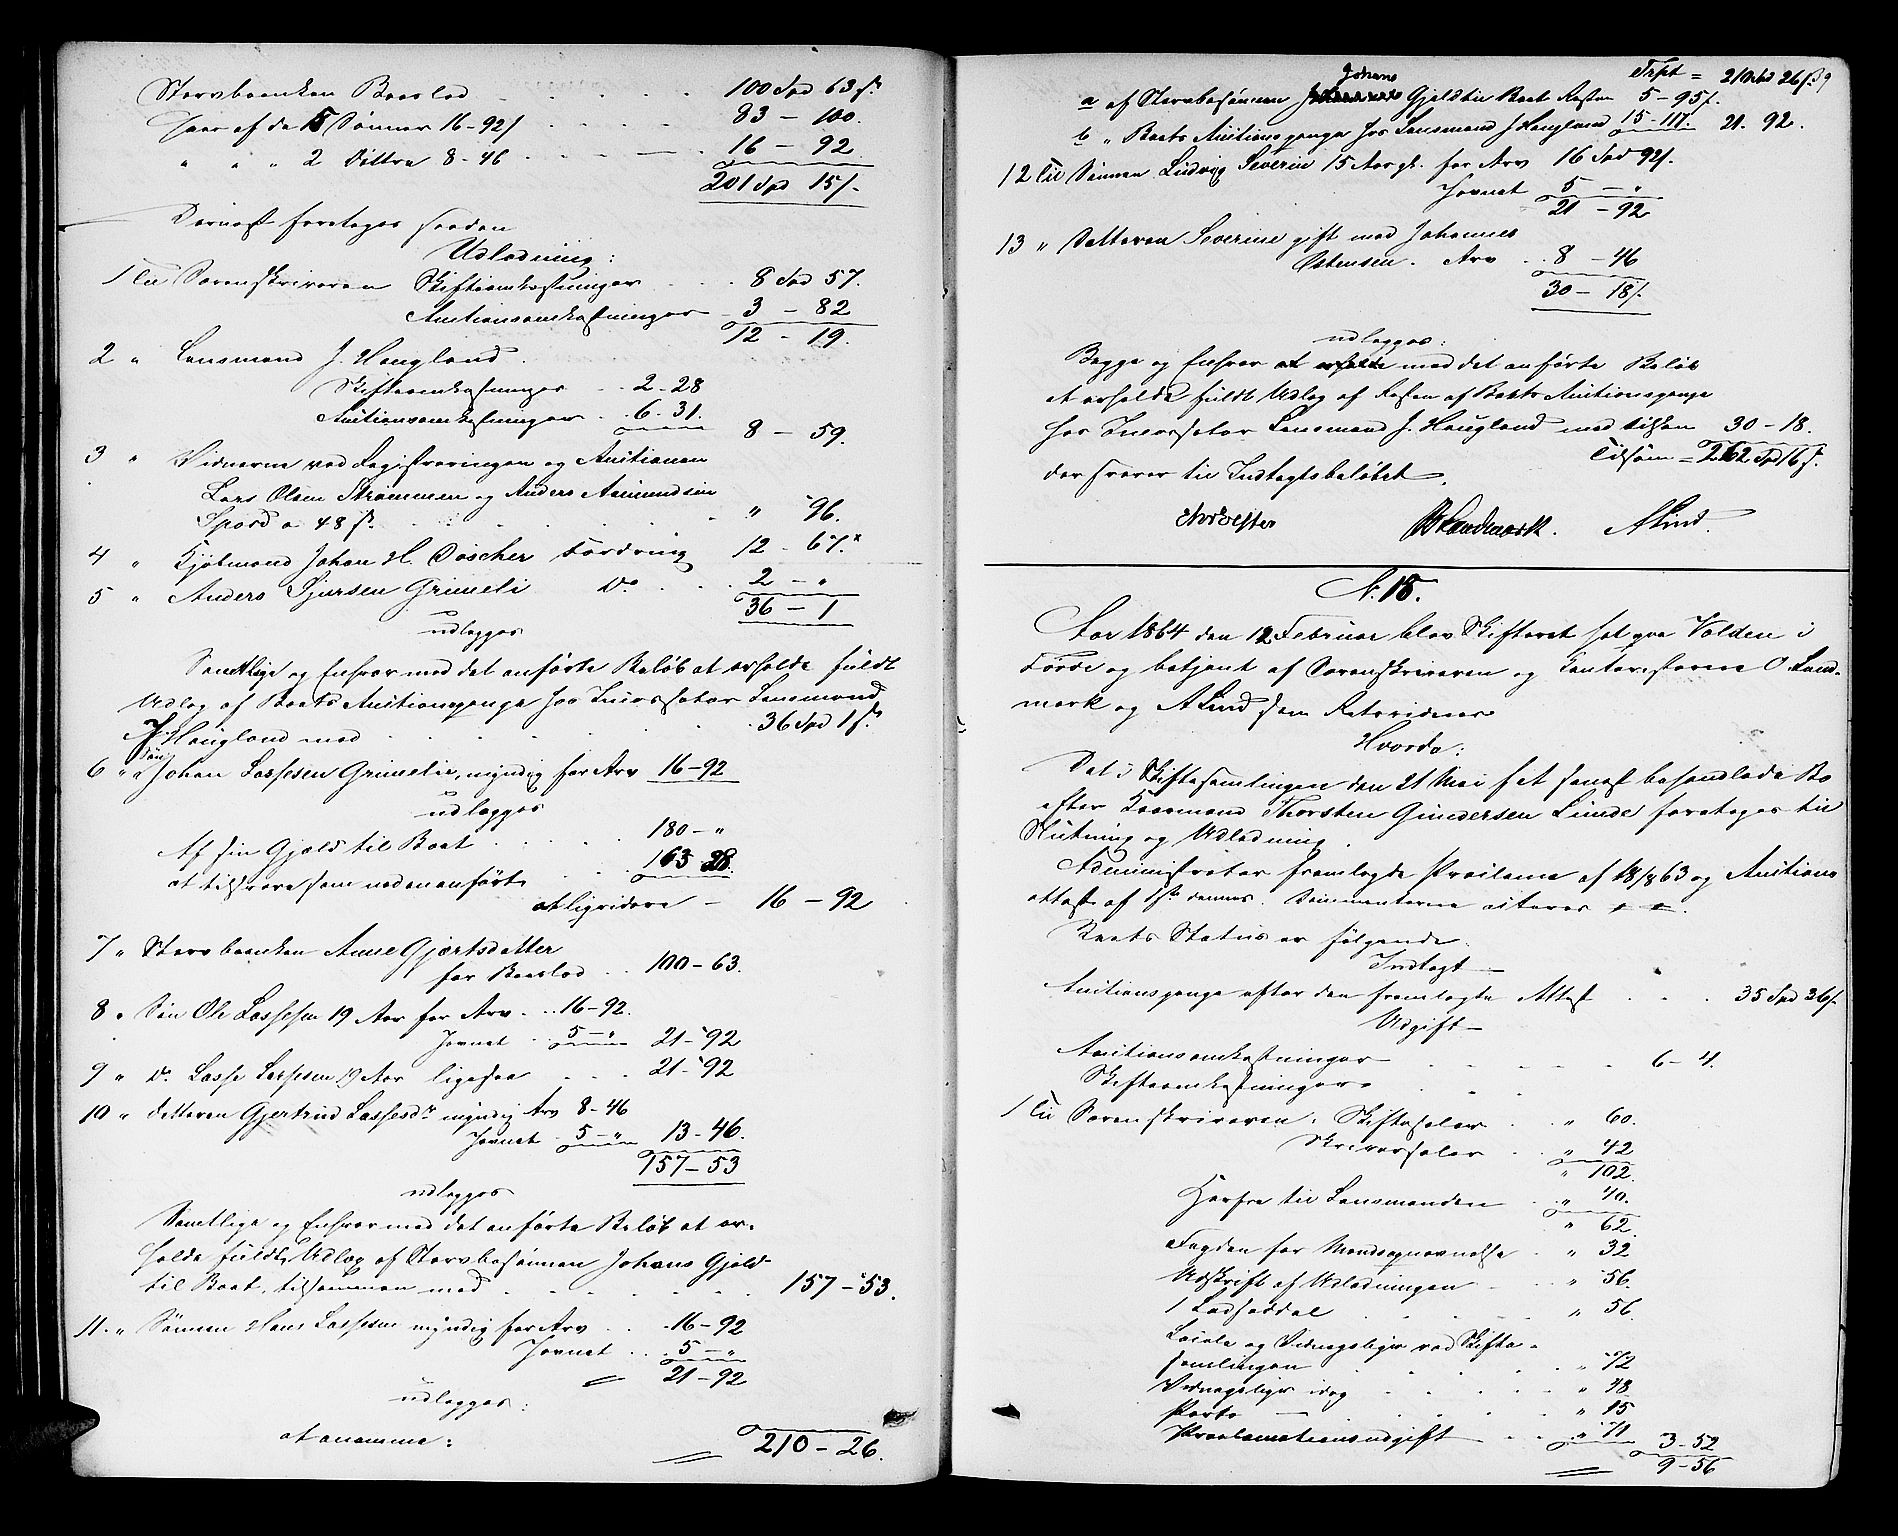 Stervboenken Boeslod . . . . 100 Spd 63 s.
Hver af de 5 Sønner 16-92 s . . . . 83 - 100.
" " " 2 Døttre 8-46 . . . 16 - 92
201 Spd 15 s.
Dernæst foretoges saadan
Udlodning:
1 Til Sorenskriveren Skifteomkostninger . . 8 Spd 57.
Auctionsomkostninger - 3 - 82
12 - 19.
2 " Lensmand J. Hougland.
Skifteomkostninger . . 2-28
Auctionsomkostninger . . 6-31.
8 - 59.
3 " Vidnerne ved Registreringen og Auctionen
Lars Olsen Strømmen og Anders Aamundsen
Spord a 48 s. . . . . " 96.
4 " Kjøbmand Johan H. Döscher Fordring 12 - 67.
5 " Anders Sjursen Grimeli Do . . 2 - "
36 - 1
udlægges
Samtlige og Enhver med det anførte Beløb at erholde fuldt
Udlæg af Boets Auctionspenge hos Incassator Lensmand
J. Hougland med . . . . 36 Spd 1 s.
6 " Søn Johan Lassesen Grimelie, myndig for Arv 16-92
udlægges
Af sin Gjeld til Boet . . . . 180 - "
at tilsvare som nedenanført . . 163 28.
at liqvidere - 16 - 92
7 " Stervboenken Anne Gjertsdatter
for Boeslod . . 100 - 63.
8 " Søn Ole Lassesen 19 Aar for Arv . . 16-92.
Forret . 5 - " 21 - 92
9 " Do Lasse Lassesen 19 Aar ligesaa . . . 21 - 92
10 " Datteren Gjertrud Lassesdr myndig Arv 8-46
Forret . 5 - " 13 - 46.
157 - 53
udlægges
Samtlige og Enhver med det anførte Beløb at er-
holde fuldt Udlæg af Stervbosønnen Johans Gjeld
til Boet, tilsammen med . . . . 157 - 53.
11. " Sønnen Hans Lassesen myndig for Arv . . 16-92
Forret . . 5 - "
21 - 92
udlægges:
at annamme: 210 - 26.
Trpt = 210 Spd 26 s.
a af Stervbosønnen Johans Gjeld til Boet Resten 5 - 95 s.
b " Boets Auctionspenge hos Lensmand J Hougland 15 - 117. 21. 92.
12 Til Sønnen Ludvig Severin 15 Aar gl. for Arv 16 Spd 92 s.
Forret 5 - "
21 - 92
13 " Datteren Severine gift med Johannes
Østensen. Arv . . 8 - 46
30 - 18 s.
udlægges:
Begge og Enhver med det anførte Beløb
at erholde fuldt Udlæg af Resten af Boets Auctionspenge
hos Incassator Lensmand J. Hougland med tilsam 30 - 18.
Tilsam = 262 Spd 16 s.
der svarer til Indtægtsbeløbet.
Landmark. A Lind.
N. 18.
Aar 1864 den 12 Februar blev Skifteret sat paa Volden i
Førde og betjent af Sorenskriveren og Contoristerne O Land-
mark og A Lind som Retsvidner
Hvorda:
Det i Skiftesamlingen den 21 Mai f. A. senest behandlede Bo
efter Kaarmand Thorsten Gundersen Lunde foretoges til
Slutning og Udlodning.
Administrator fremlagde Proclama af 18/8 63 og Auctions
attest af Dags dennes. Documenterne citeres
Boets Status er følgende
Indtægt -
Auctionspenge efter den fremlagte Attest . . . 35 Spd 36 s.
Udgift -
Auctionsomkostninger . . . . 6 - 4.
Skifteomkostninger
1 Til Sorenskriveren: Skiftesalær . . " 60.
Skriversalær . . " 42
" 102.
Herfra til Lensmanden . . " 40.
" 62
Fogden for Mandsopnævnelse . " 32
Udskrift af Udlodningen . . " 56.
1 Lodseddel . . . . " 56
Locale og Vidnepenge ved Skifte-
samlingen . . . . " 72
Vidnepenge idag . . . . " 48
Porto - . . . . " 15
Proclamationsudgift . . " 71 3-52
9 - 56